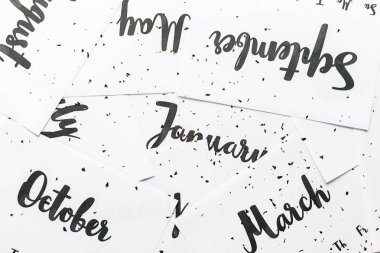 August
May
September
Su
January
October
March
Th Fr